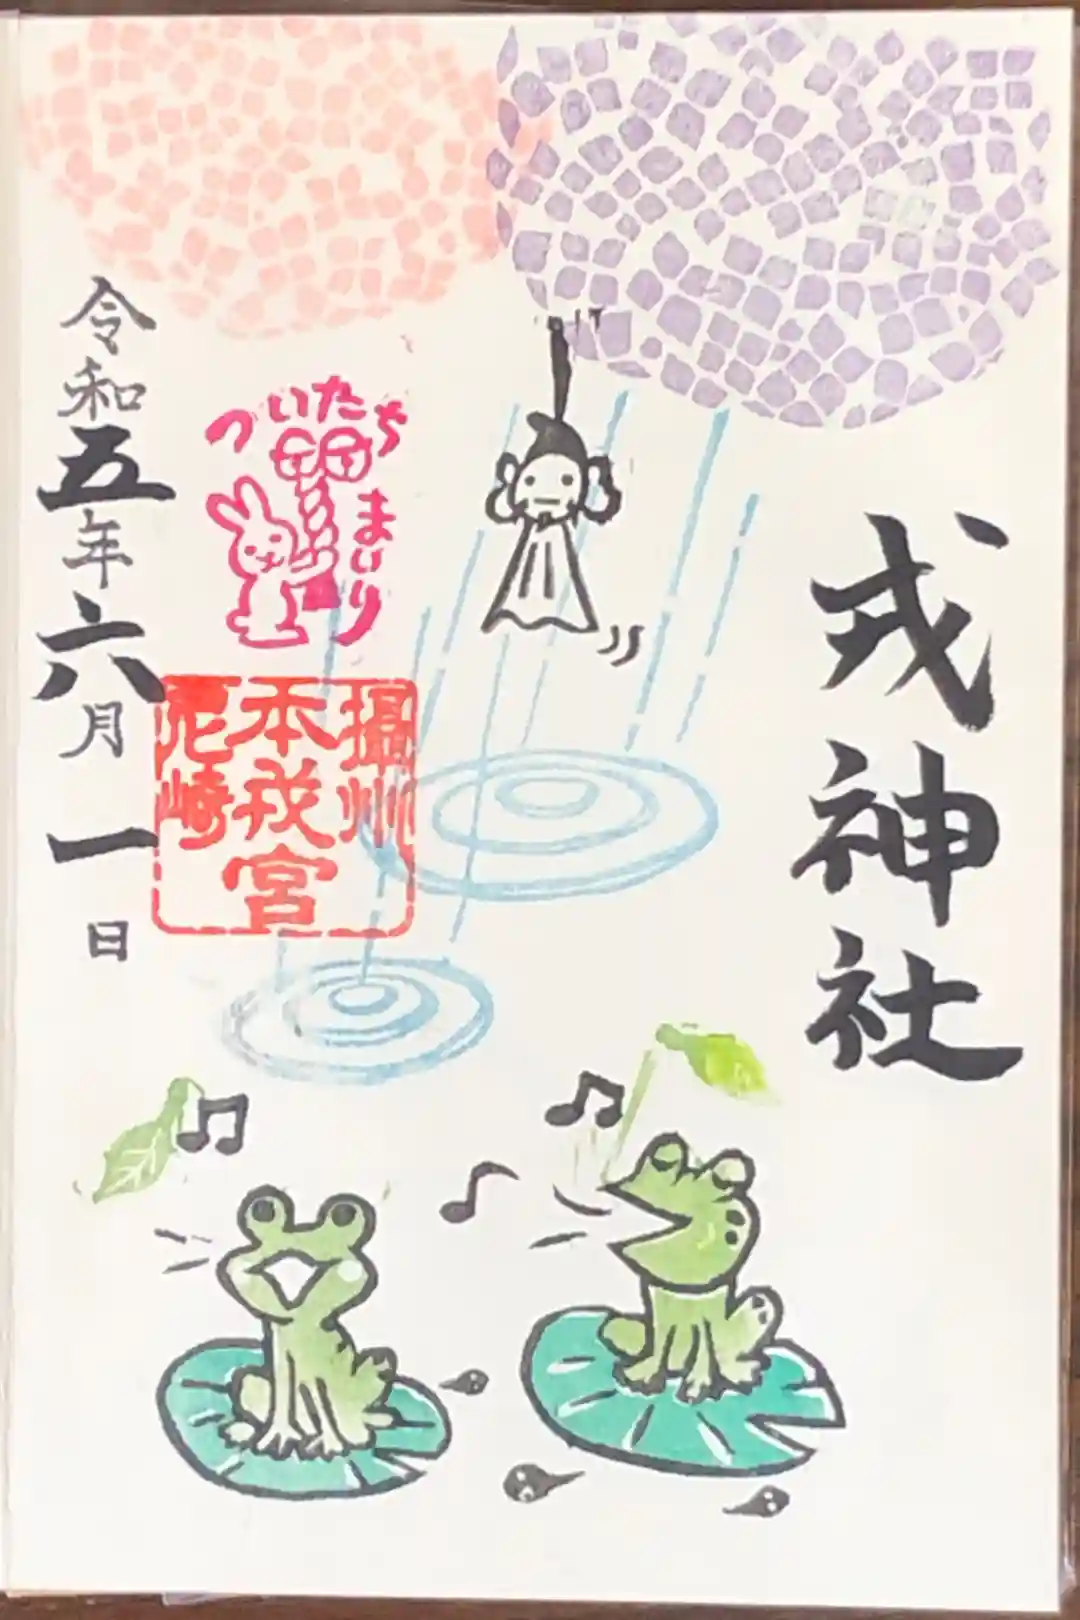 戎神社
ついたち
まいり
攝州
本戎宮
尼崎
令和五年六月一日